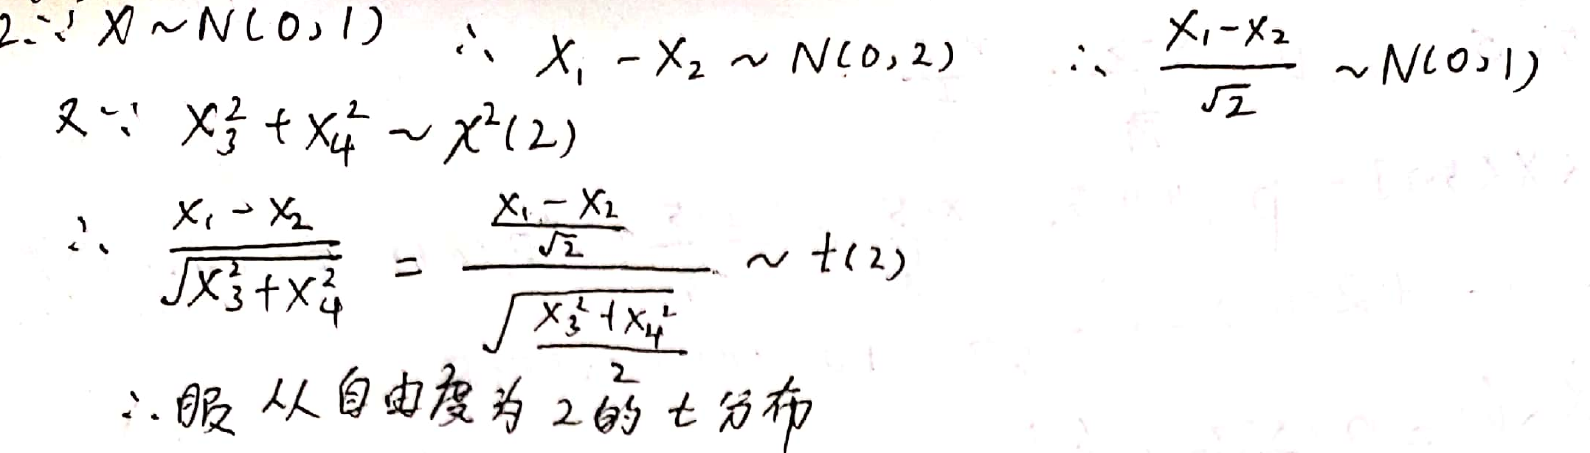 2. ∵ X ~ N(0,1) ∴ X₁ - X₂ ~ N(0,2) ∴ \frac{X₁-X₂}{\sqrt{2}} ~ N(0,1)
又∵ X₃² + X₄² ~ χ²(2)
∴ \frac{X₁-X₂}{\sqrt{X₃²+X₄²}} = \frac{\frac{X₁-X₂}{\sqrt{2}}}{\sqrt{\frac{X₃²+X₄²}{2}}} ~ t(2)
∴服从自由度为2的t分布